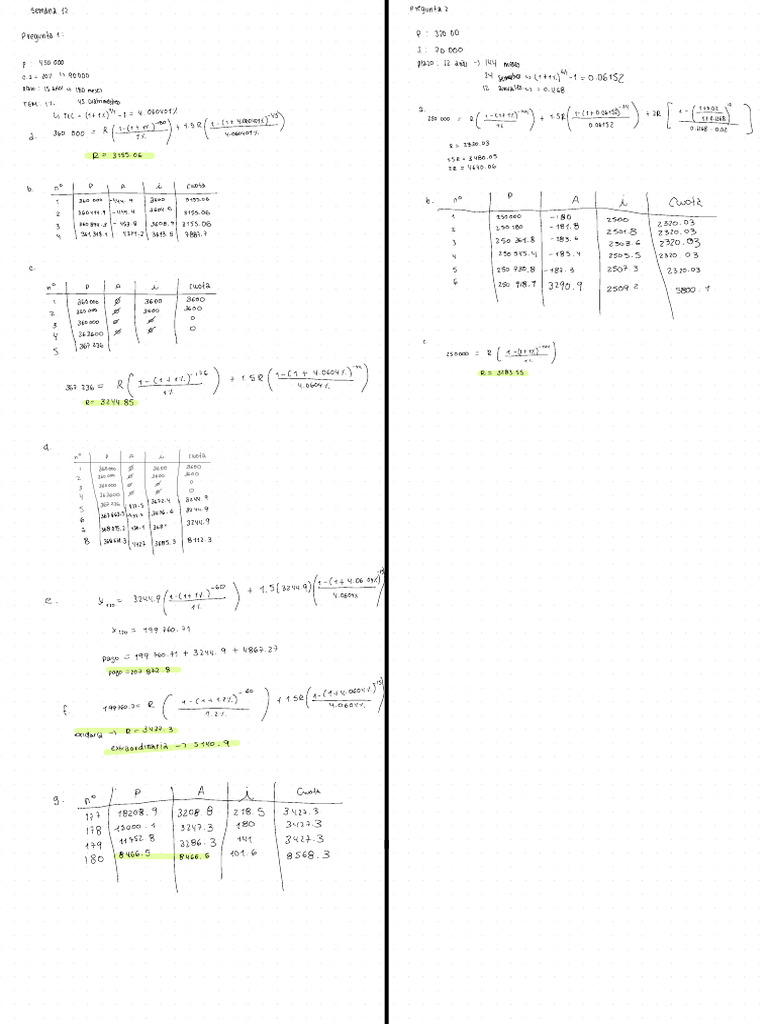 Semana 12
Pregunta 1:
P: 450 000
C.I = 20% → 90000
Plazo: 15 años → 180 meses
45 cuatrimestres
TEM: 1%
↳ TEC = (1+1%)^4/1 - 1 = 4.060401%
a. 360 000 = R((1-(1+1%)^-180)/1%) + 1.5R((1-(1+4.060401%)^-45)/4.060401%)
R = 3155.06
b.
n° P A i Cuota
1 360 000 -444.9 3600 3155.06
2 360444.9 -449.4 3604.4 3155.06
3 360894.3 -453.8 3608.9 3155.06
4 361348.1 4274.2 3613.5 7887.7
c.
n° P A i Cuota
1 360000 ∅ 3600 3600
2 360000 ∅ 3600 3600
3 360000 ∅ ∅ 0
4 363600 ∅ ∅ 0
5 367236
367 236 = R((1-(1+1%)^-176)/1%) + 1.5R((1-(1+4.0604%)^-44)/4.0604%)
R = 3244.85
d.
n° P A i Cuota
1 360000 ∅ 3600 3600
2 360000 ∅ 3600 3600
3 360000 ∅ ∅ 0
4 363600 ∅ ∅ 0
5 367236 3672.4 3244.9
6 3676.6 3244.9
7 3244.9
8 4427 3685.3 8112.3
e. X120 = 3244.9((1-(1+1%)^-60)/1%) + 1.5(3244.9)((1-(1+4.0604%)^-15)/4.0604%)
X120 = 199 760.71
pago = 199 760.71 + 3244.9 + 4867.27
pago = 207 872.8
f. 199760.7 = R((1-(1+1.2%)^-60)/1.2%) + 1.5R((1-(1+4.0604%)^-15)/4.0604%)
→ R = 3427.3
extraordinaria → 5140.9
g.
n° P A i Cuota
177 18208.9 3208.8 218.5 3427.3
178 15000.1 3247.3 180 3427.3
179 11752.8 3286.3 141 3427.3
180 8466.5 8466.6 101.6 8568.3
Pregunta 2
P: 320 00
I: 70 000
plazo: 12 años → 144 meses
24 semestres → (1+1%)^6/1 - 1 = 0.06152
12 anuales → = 0.1268
a. 250 000 = R((1-(1+1%)^-144)/1%) + 1.5R((1-(1+0.06152)^-24)/0.06152) + 2R[(1-((1+0.02)/(1+0.1268))^12)/(0.1268-0.02)]
R = 2320.03
1.5R = 3480.05
2R = 4640.06
b.
n° P A i Cuota
1 250000 -180 2500 2320.03
2 250180 -181.8 2501.8 2320.03
3 250 361.8 -183.6 2503.6 2320.03
4 250 545.4 -185.4 2505.5 2320.03
5 250 730.8 -187.3 2507.3 2320.03
6 250 918.1 3290.9 2509.2 5800.1
c. 250000 = R((1-(1+1%)^-144)/1%)
R = 3283.55